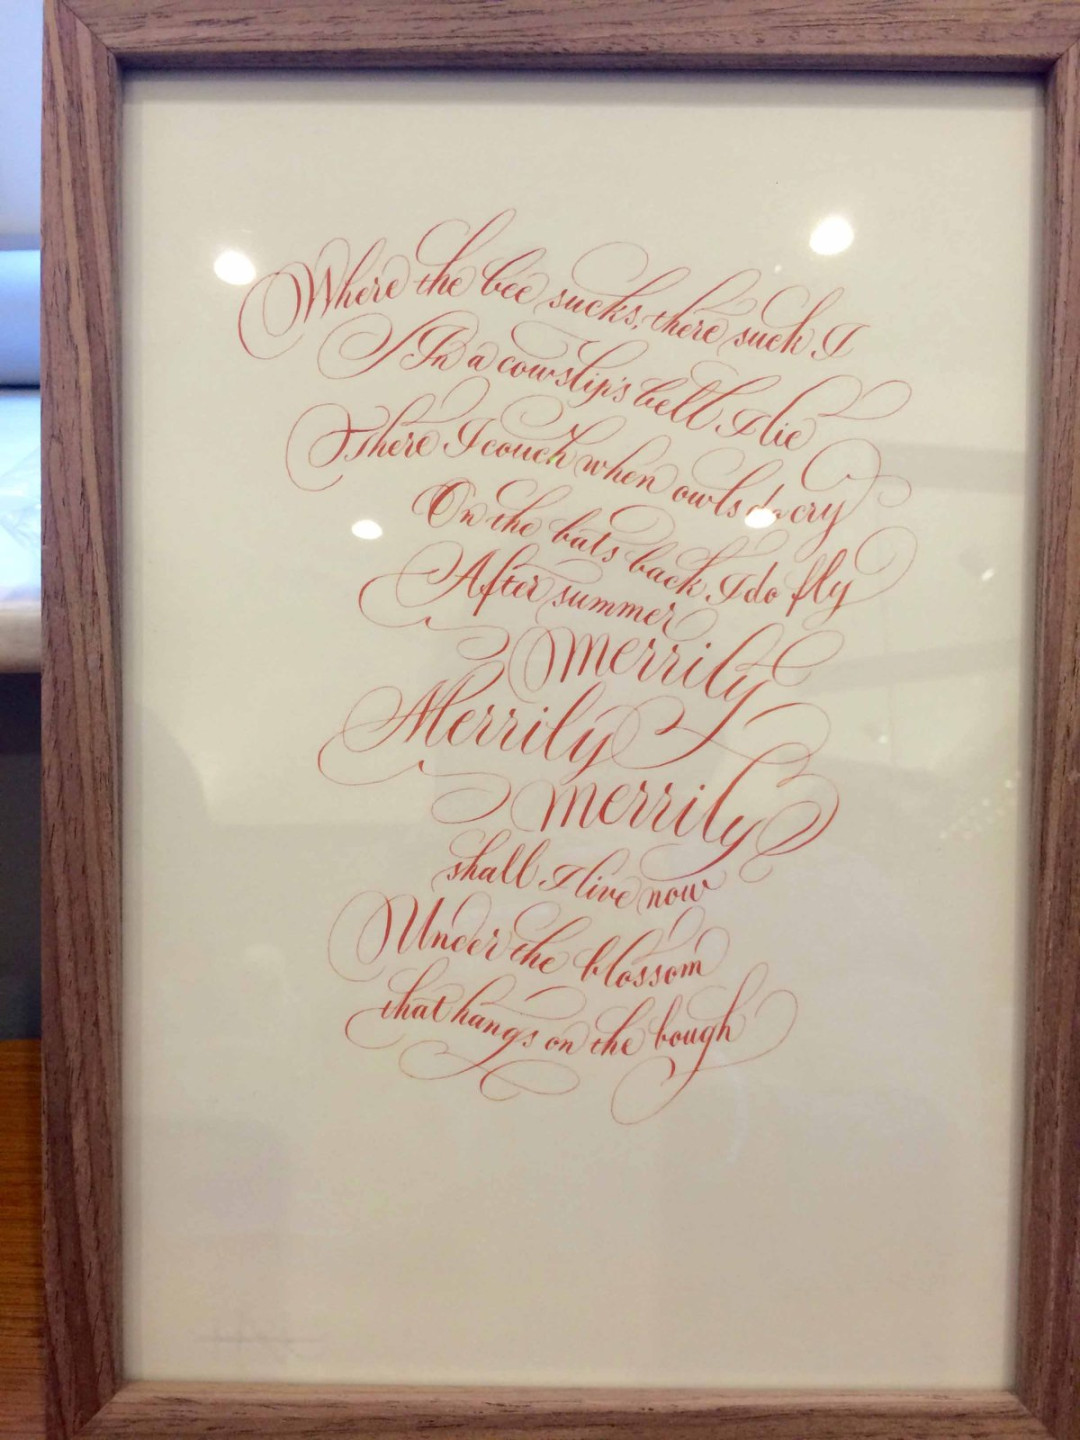 Where the bee sucks, there suck I
In a cowslip's bell I lie
There I couch when owls do cry
On the bats back I do fly
After summer
merrily
Merrily
merrily
shall I live now
Under the blossom
that hangs on the bough